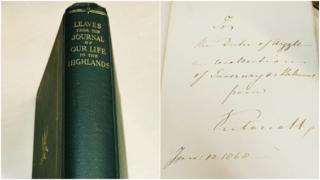 LEAVES
FROM THE
JOURNAL
OF
OUR LIFE
IN THE
HIGHLANDS
To
the Duke of Argyll
in recollection
of Inveraray &
from
Victoria R
Jan: 10 1868